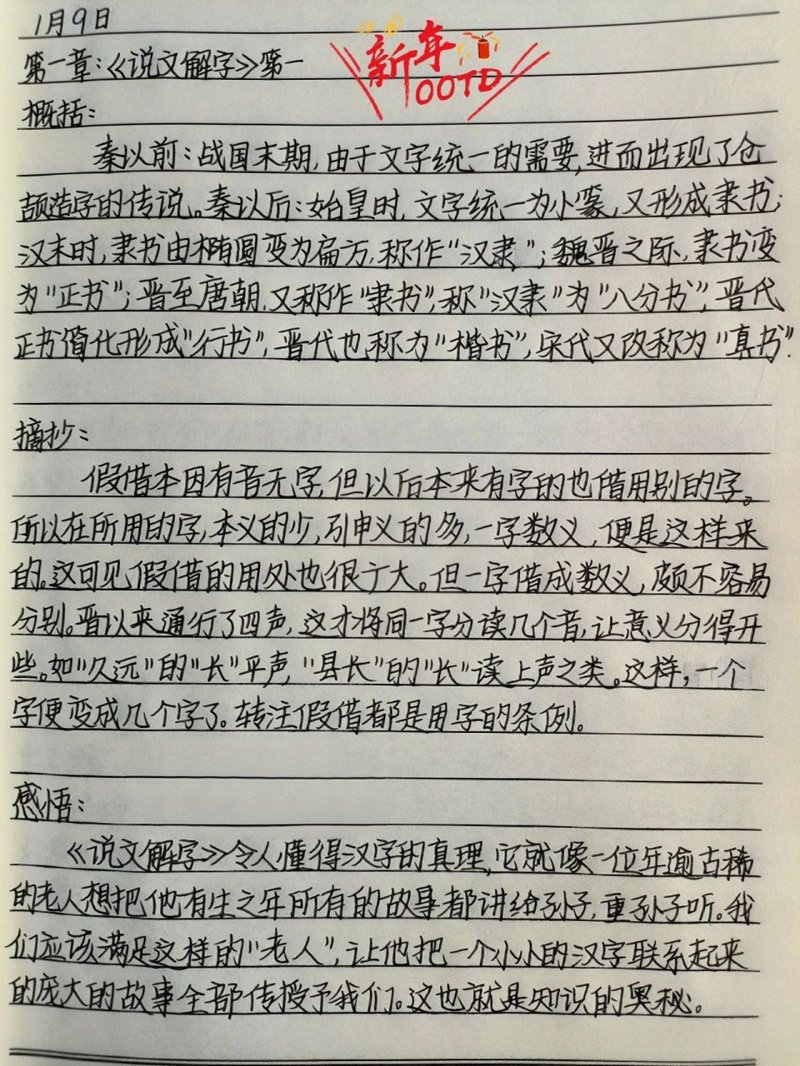 1月9日
第一章:《说文解字》第一
新年
OOTD
概括:
秦以前:战国末期,由于文字统一的需要,进而出现了仓
颉造字的传说。秦以后:始皇时,文字统一为小篆,又形成隶书;
汉末时,隶书由椭圆变为扁方,称作“汉隶”;魏晋之际,隶书变
为“正书”;晋至唐朝,又称作“隶书”,称“汉隶”为“八分书”,晋代
正书简化形成“行书”,晋代也称为“楷书”,宋代又改称为“真书”.
摘抄:
假借本因有音无字,但以后本来有字的也借用别的字。
所以在所用的字,本义的少,引申义的多,一字数义,便是这样来
的。这可见假借的用处也很广大。但一字借成数义,颇不容易
分别。晋以来通行了四声,这才将同一字分读几个音,让意义分得开
些。如“久远”的“长”平声,“县长”的“长”读上声之类。这样,一个
字便变成几个字了。转注假借都是用字的条例。
感悟:
《说文解字》令人懂得汉字的真理,它就像一位年逾古稀
的老人想把他有生之年所有的故事都讲给孙子,重孙子听。我
们应该满足这样的“老人”,让他把一个小小的汉字联系起来
的庞大的故事全部传授予我们。这也就是知识的奥秘。